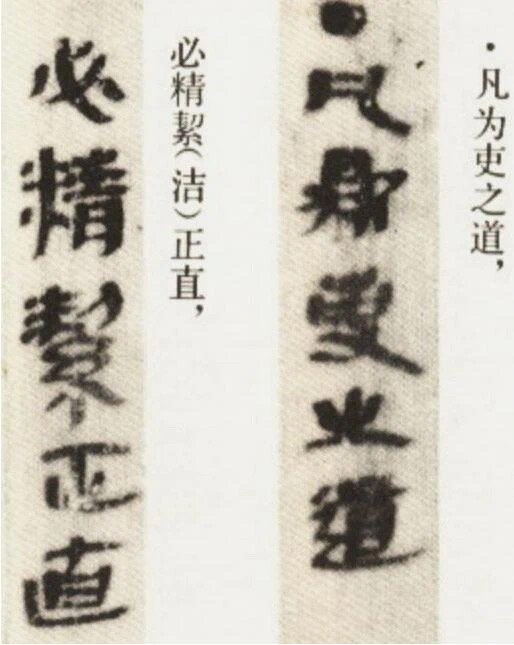 •凡为吏之道，
•凡為吏之道
必精絜（洁）正直，
必精絜正直